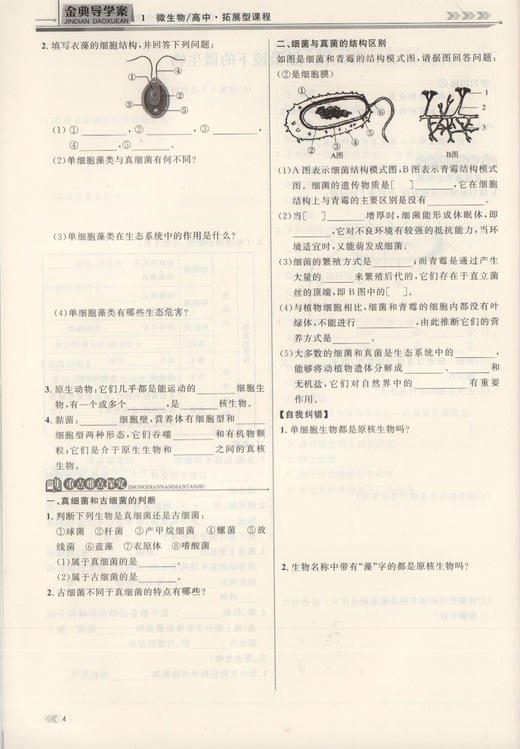 金典导学案
JINDIAN DAOXUEAN
1 微生物/高中·拓展型课程
2. 填写衣藻的细胞结构,并回答下列问题:
① ② ③ ④ ⑤
(1)①________,②________,③________,
④________,⑤________。
(2)单细胞藻类与真细菌有何不同?
(3)单细胞藻类在生态系统中的作用是什么?
(4)单细胞藻类有哪些生态危害?
3. 原生动物:它们几乎都是能运动的________细胞生
物,有一个或多个________,是________核生物。
4. 黏菌:________细胞壁,营养体有细胞型和________
细胞型两种形态,它们吞噬________和有机物颗
粒;它们是介于原生生物和________之间的真核
生物。
重点难点探究
ZHONGDIANNANDIANTANJIU
一、真细菌和古细菌的判断
1. 判断下列生物是真细菌还是古细菌:
①球菌 ②杆菌 ③产甲烷细菌 ④螺菌 ⑤放
线菌 ⑥蓝藻 ⑦衣原体 ⑧嗜酸菌
(1)属于真细菌的是________。
(2)属于古细菌的是________。
2. 古细菌不同于真细菌的特点有哪些?
4
二、细菌与真菌的结构区别
如图是细菌和青霉的结构模式图,请据图回答问题:
(②是细胞膜)
① ② ③ ④ ⑤
A图
1 2 3
B图
(1)A图表示细菌结构模式图,B图表示青霉结构模式
图。细菌的遗传物质是[ ]________,它在细胞
结构上与青霉的主要区别是没有________。
(2)当[ ]________增厚时,细菌能形成休眠体,即
________,它对不良环境有较强的抵抗能力,当环
境适宜时,又能萌发成细菌。
(3)细菌的繁殖方式是________;而青霉是通过产生
大量的________来繁殖后代的,它们存在于直立菌
丝的顶端,即B图中的[ ]。
(4)与植物细胞相比,细菌和青霉的细胞内都没有叶
绿体,不能进行________,由此推断它们的营
养方式是________。
(5)大多数的细菌和真菌是生态系统中的________,
能够将动植物遗体分解成________、________和
无机盐,它们对自然界中的________有重要
作用。
【自我纠错】
1. 单细胞生物都是原核生物吗?
2. 生物名称中带有“藻”字的都是原核生物吗?